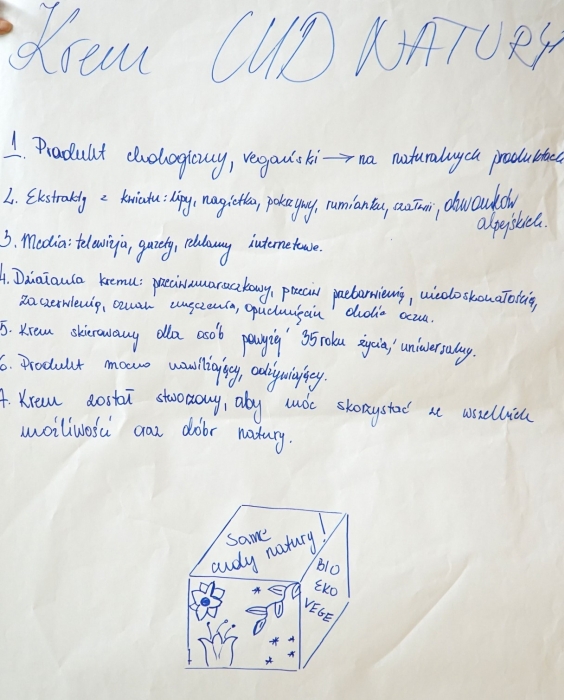 Krem CUD NATURY
1. Produkt ekologiczny, vegański → na naturalnych produktach
2. Ekstrakty z kwiatu: lipy, nagietka, pokrzywy, rumianku, szałwii, dzwonków
alpejskich.
3. Media: telewizja, gazety, reklamy internetowe.
4. Działania kremu: przeciwzmarszczkowy, przeciw przebarwienią, niedoskonałością,
zaczerwienią, oznak zmęczenia, opuchnięcia okolic oczu.
5. Krem skierowany dla osób powyżej 35 roku życia, uniwersalny.
6. Produkt mocno nawilżający, odżywiający.
7. Krem został stworzony, aby móc skorzystać ze wszelkich
możliwości oraz dóbr natury.
Same
cudy natury!
BIO
EKO
VEGE